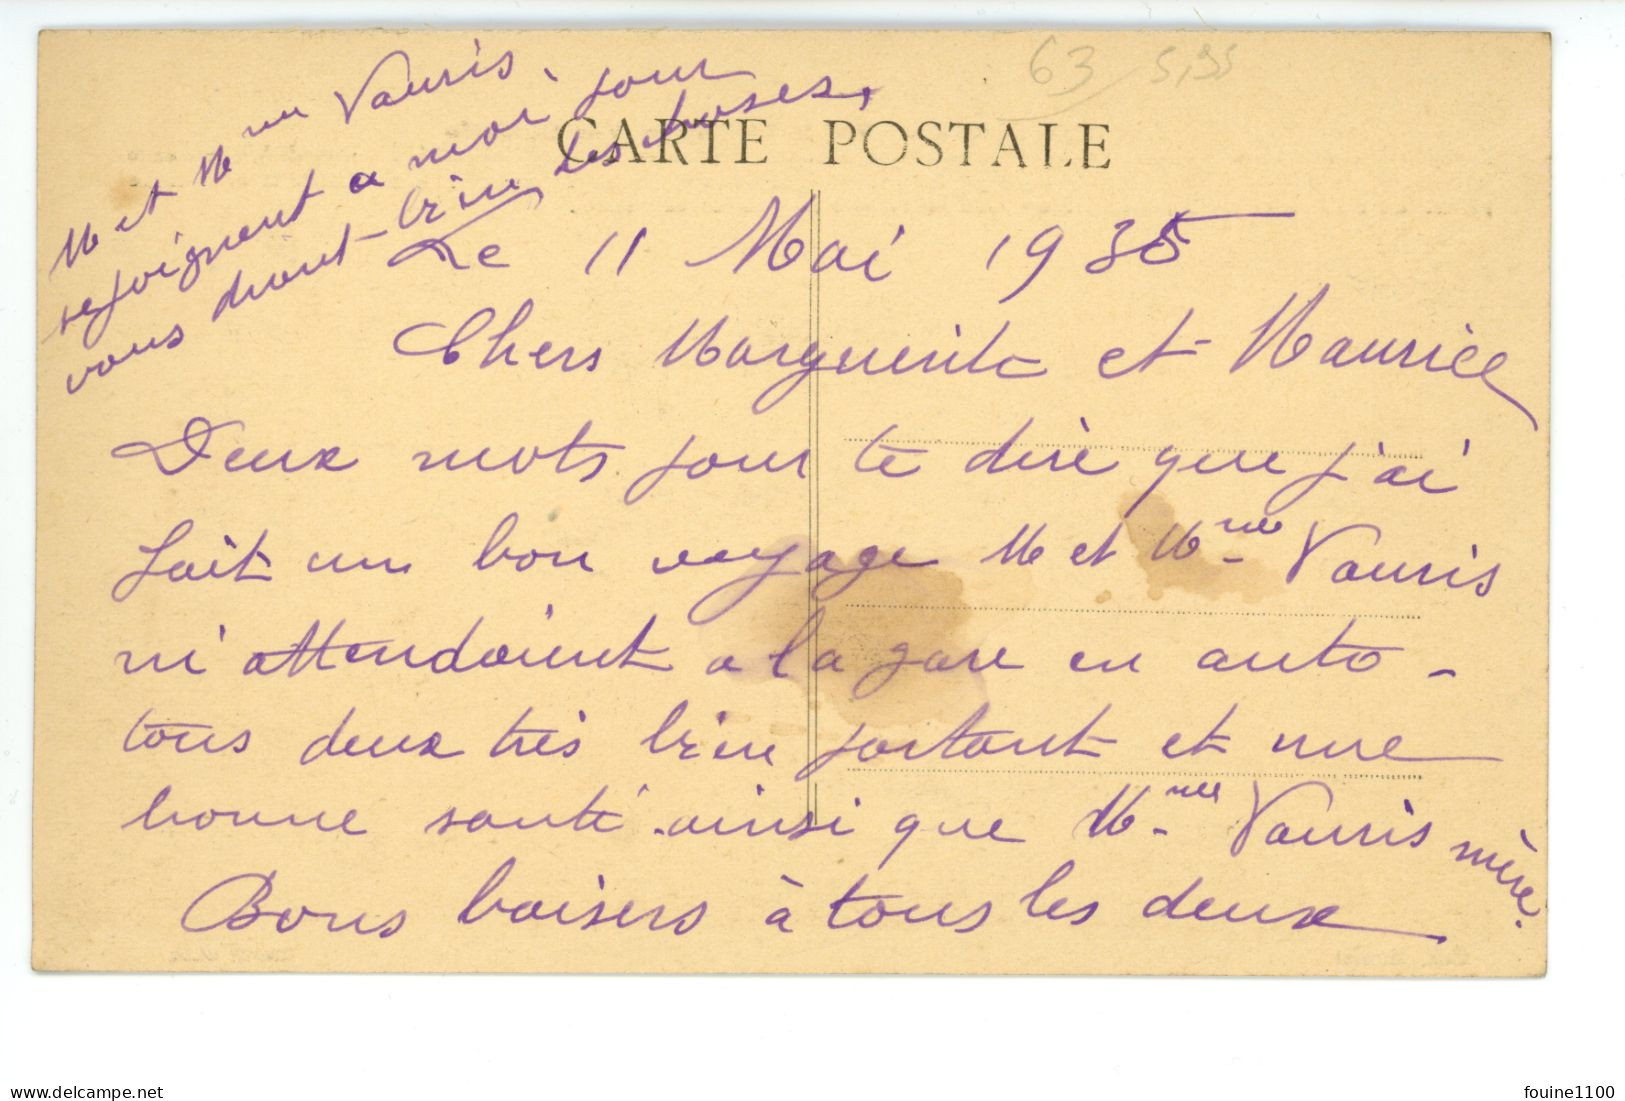 63 5,95
CARTE POSTALE
Le 11 Mai 1935
Chers Marguerite et Maurice
Deux mots pour te dire que j'ai
fait un bon voyage M et Mme Vauris
m'attendaient a la gare en auto -
tous deux très bien portant et une
bonne santé ainsi que Mme Vauris mère.
Bons baisers à tous les deux
M et Mme Vauris
se joignent a moi pour
vous bien des choses,
delcampe.net
fouine1100